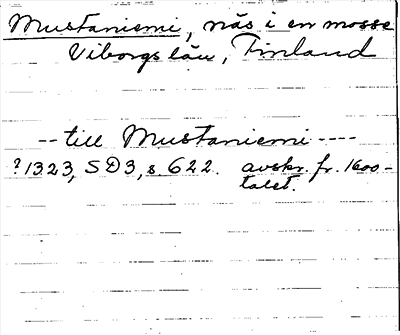 Mustaniemi, näs i en mosse
Viborgs län, Finland
-- till Mustaniemi ----
? 1323, SD3, s. 622. avskr. fr. 1600-
talet.